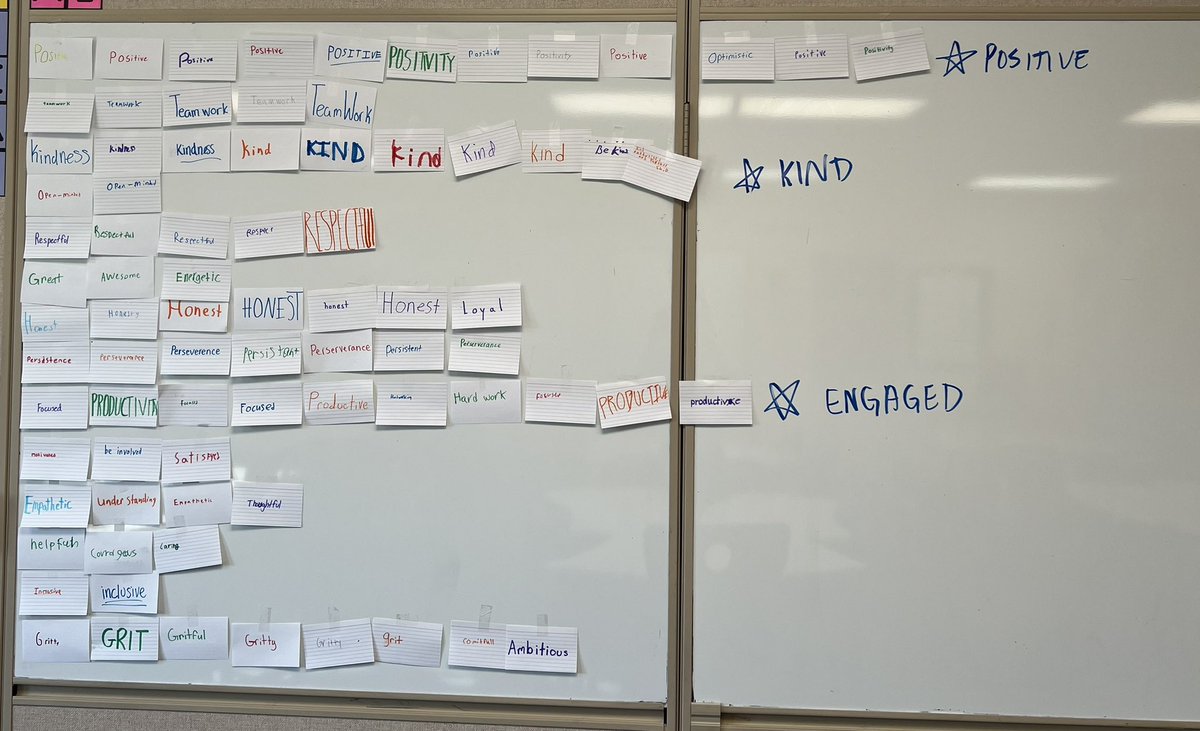 Positive Positive Positive Positive POSITIVE POSITIVITY Positive Positivity Positive Optimistic Positive Positivity POSITIVE
Teamwork TEAMWORK Teamwork Teamwork TeamWork
kindness kindness Kind KIND Kind Kind Kind Be Kind KIND
OPen-minded OPen-minded
Respectful Respectful Respectful RESPECT RESPECTFUL
Great AWesome Energetic
Honest HONESTY Honest HONEST honest Honest Loyal
Persistence Perseverance Perseverence Persistant Perserverance Persistent Perserverance
Focused PRODUCTIVITY Focused Focused Productive Hard work Focused PRODUCTIVE productive ENGAGED
motivated be involved Satisfyed
Empathetic Understanding Empathetic Thoughtful
helpful Courageous caring
Inclusive inclusive
Gritty GRIT Gritful Gritty Gritty grit Ambitious